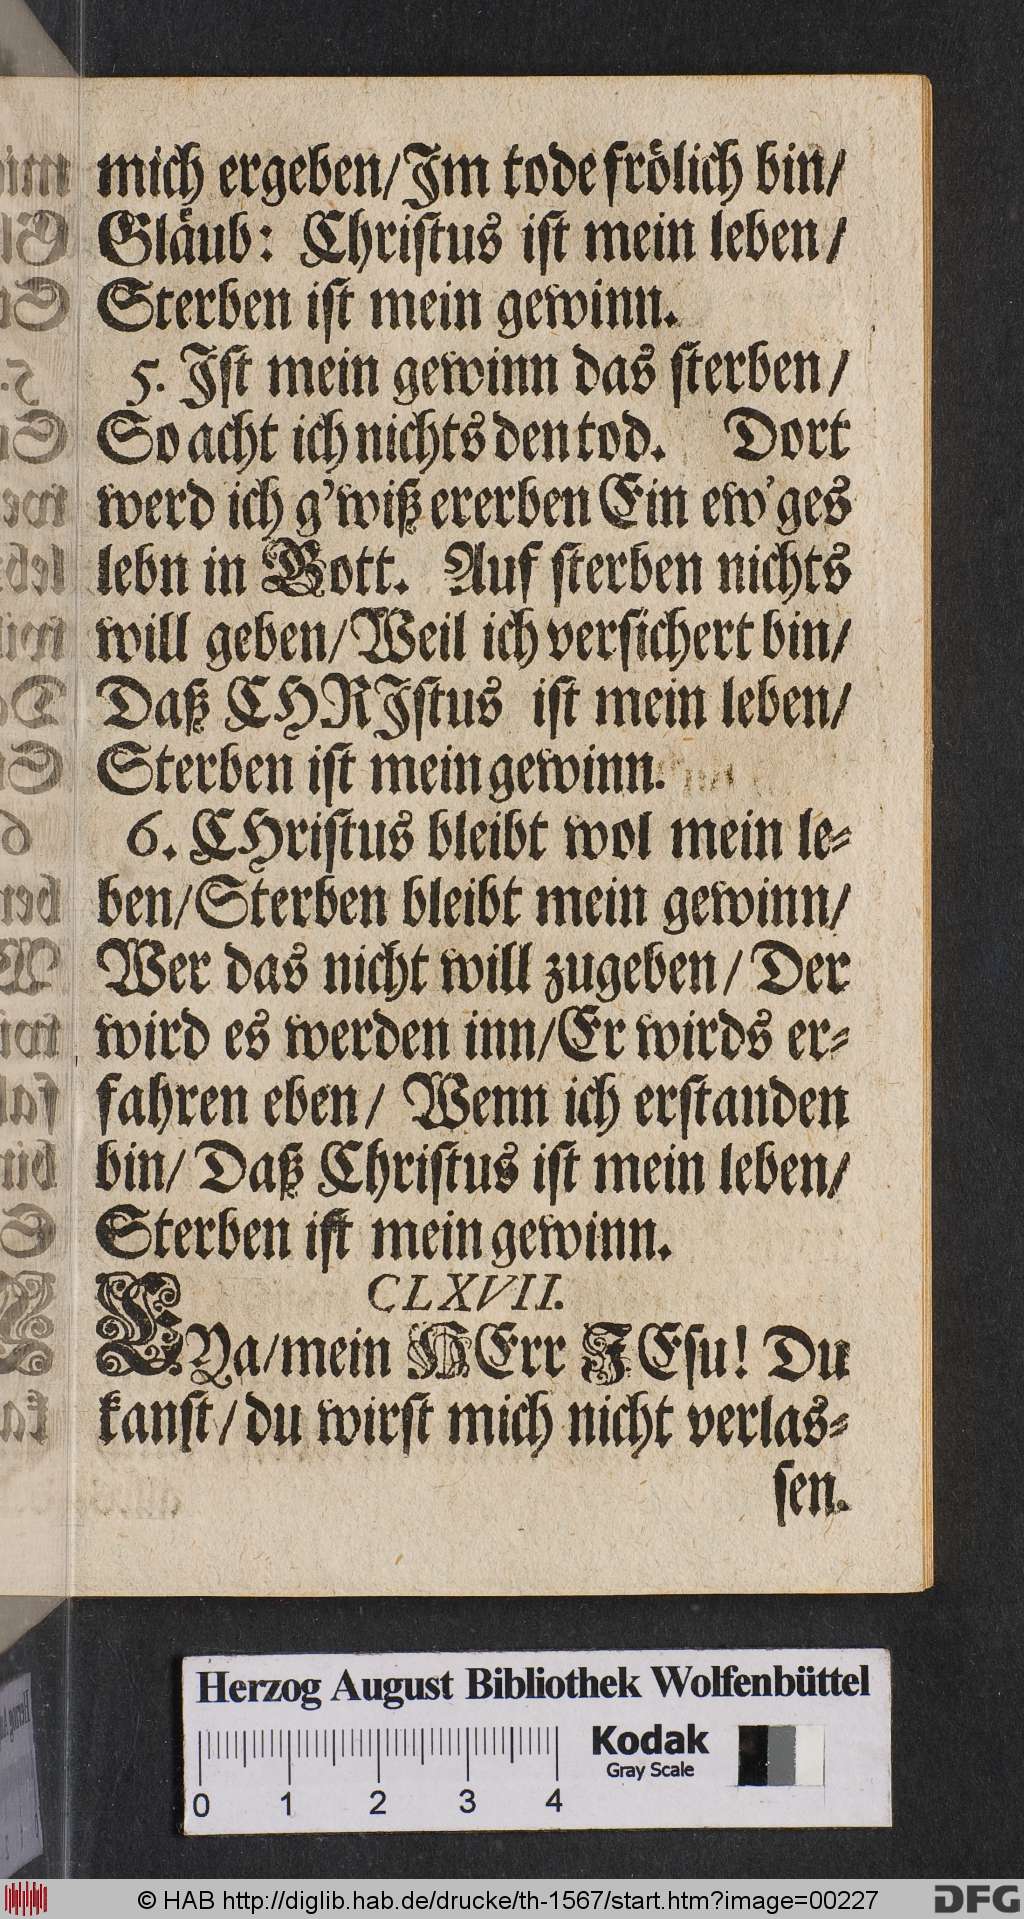 mich ergeben/Im tode frölich bin/
Gläub: Christus ist mein leben/
Sterben ist mein gewinn.
5. Ist mein gewinn das sterben/
So acht ich nichts den tod. Dort
werd ich g'wiß ererben Ein ew'ges
lebn in Gott. Auf sterben nichts
will geben/Weil ich versichert bin/
Daß CHRIstus ist mein leben/
Sterben ist mein gewinn.
6. CHristus bleibt wol mein le-
ben/Sterben bleibt mein gewinn/
Wer das nicht will zugeben/ Der
wird es werden inn/Er wirds er-
fahren eben/ Wenn ich erstanden
bin/ Daß Christus ist mein leben/
Sterben ist mein gewinn.
CLXVII.
EYa/mein HErr JEsu! Du
kanst/du wirst mich nicht verlas-
sen.
Herzog August Bibliothek Wolfenbüttel
Kodak
Gray Scale
0 1 2 3 4
© HAB http://diglib.hab.de/drucke/th-1567/start.htm?image=00227
DFG